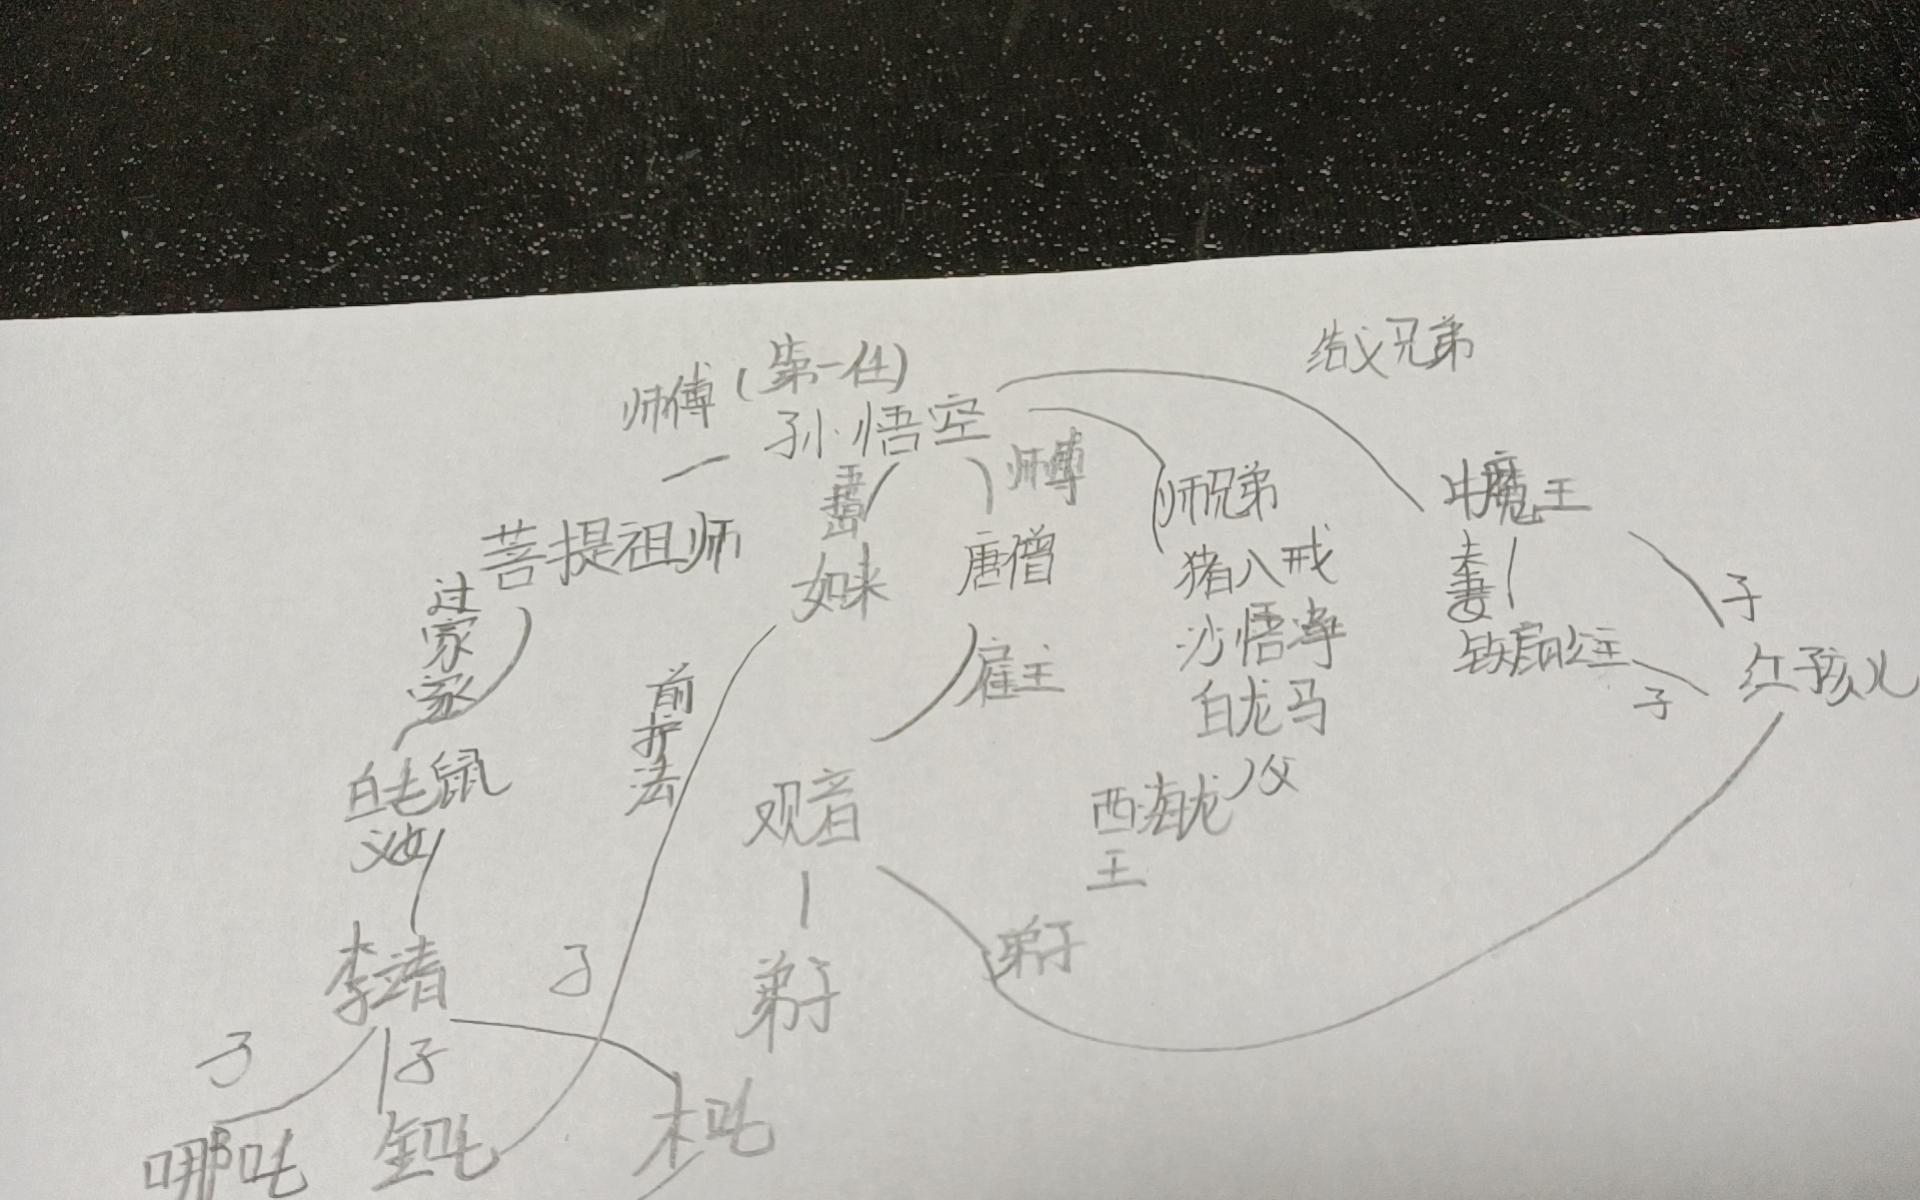 结义兄弟
师傅(第一任)
孙悟空
师傅
师兄弟
牛魔王
菩提祖师
如来
唐僧
猪八戒
夫妻
子
过家家
沙悟净
铁扇公主
红孩儿
子
前护法
雇主
白龙马
父
白毛鼠
观音
西海龙王
义女
弟子
李靖
子
弟子
子
子
哪吒
金吒
木吒